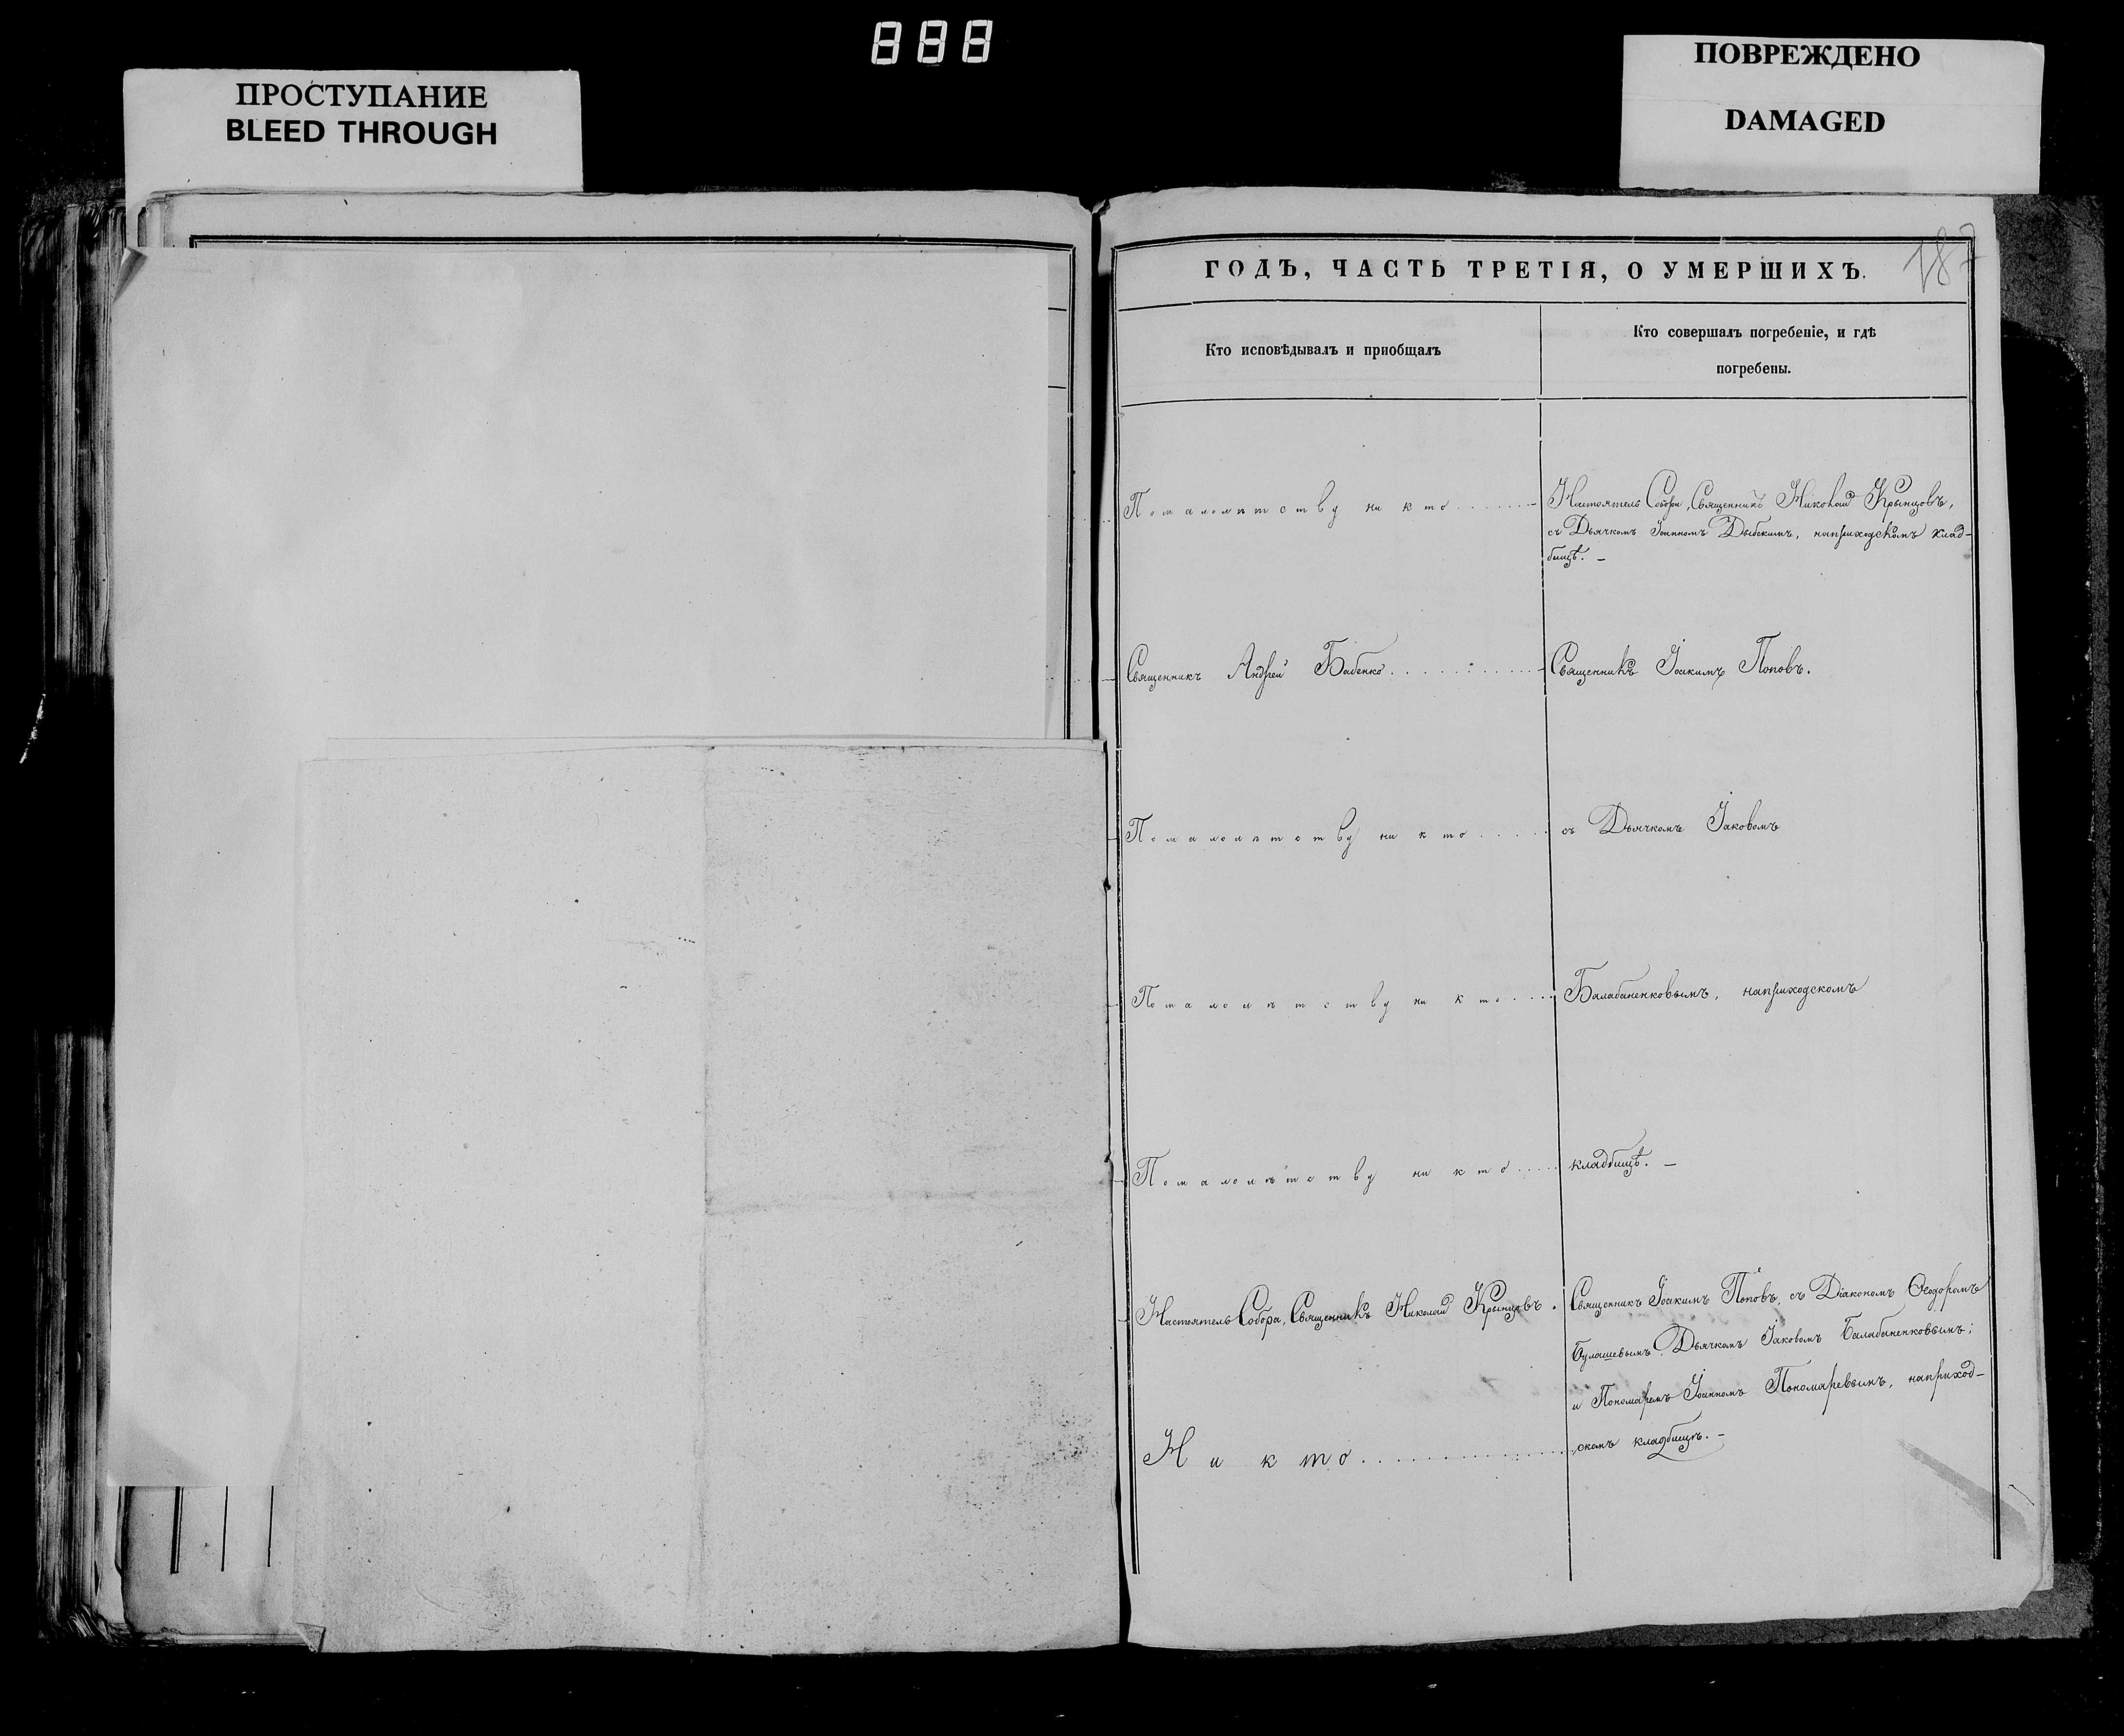 888
ПРОСТУПАНИЕ
BLEED THROUGH
ПОВРЕЖДЕНО
DAMAGED
187
ГОДЪ, ЧАСТЬ ТРЕТІЯ, О УМЕРШИХЪ.
Кто исповѣдывалъ и приобщалъ
Кто совершалъ погребеніе, и гдѣ
погребены.
По малолѣтству никто
Настоятель Собора, Священникъ Николай Крынцовъ,
съ Дьячкомъ Іоанномъ наприходскомъ клад-
бищѣ. –
Священникъ Андрей Бабенко
Священникъ Іоакимъ Поповъ.
По малолѣтству никто
съ Дьячкомъ Іаковомъ
По малолѣтству никто
Балабаненковымъ, наприходскомъ
По малолѣтству никто
кладбищѣ. –
Настоятель Собора, Священникъ Николай Крынцовъ.
Священникъ Іоакимъ Поповъ, съ Діакономъ Ѳеодоромъ
Булашевымъ, Дьячкомъ Іаковомъ Балабаненковымъ;
и Пономаремъ Іоанномъ Пономаревымъ, наприход-
скомъ кладбищѣ. –
Никто